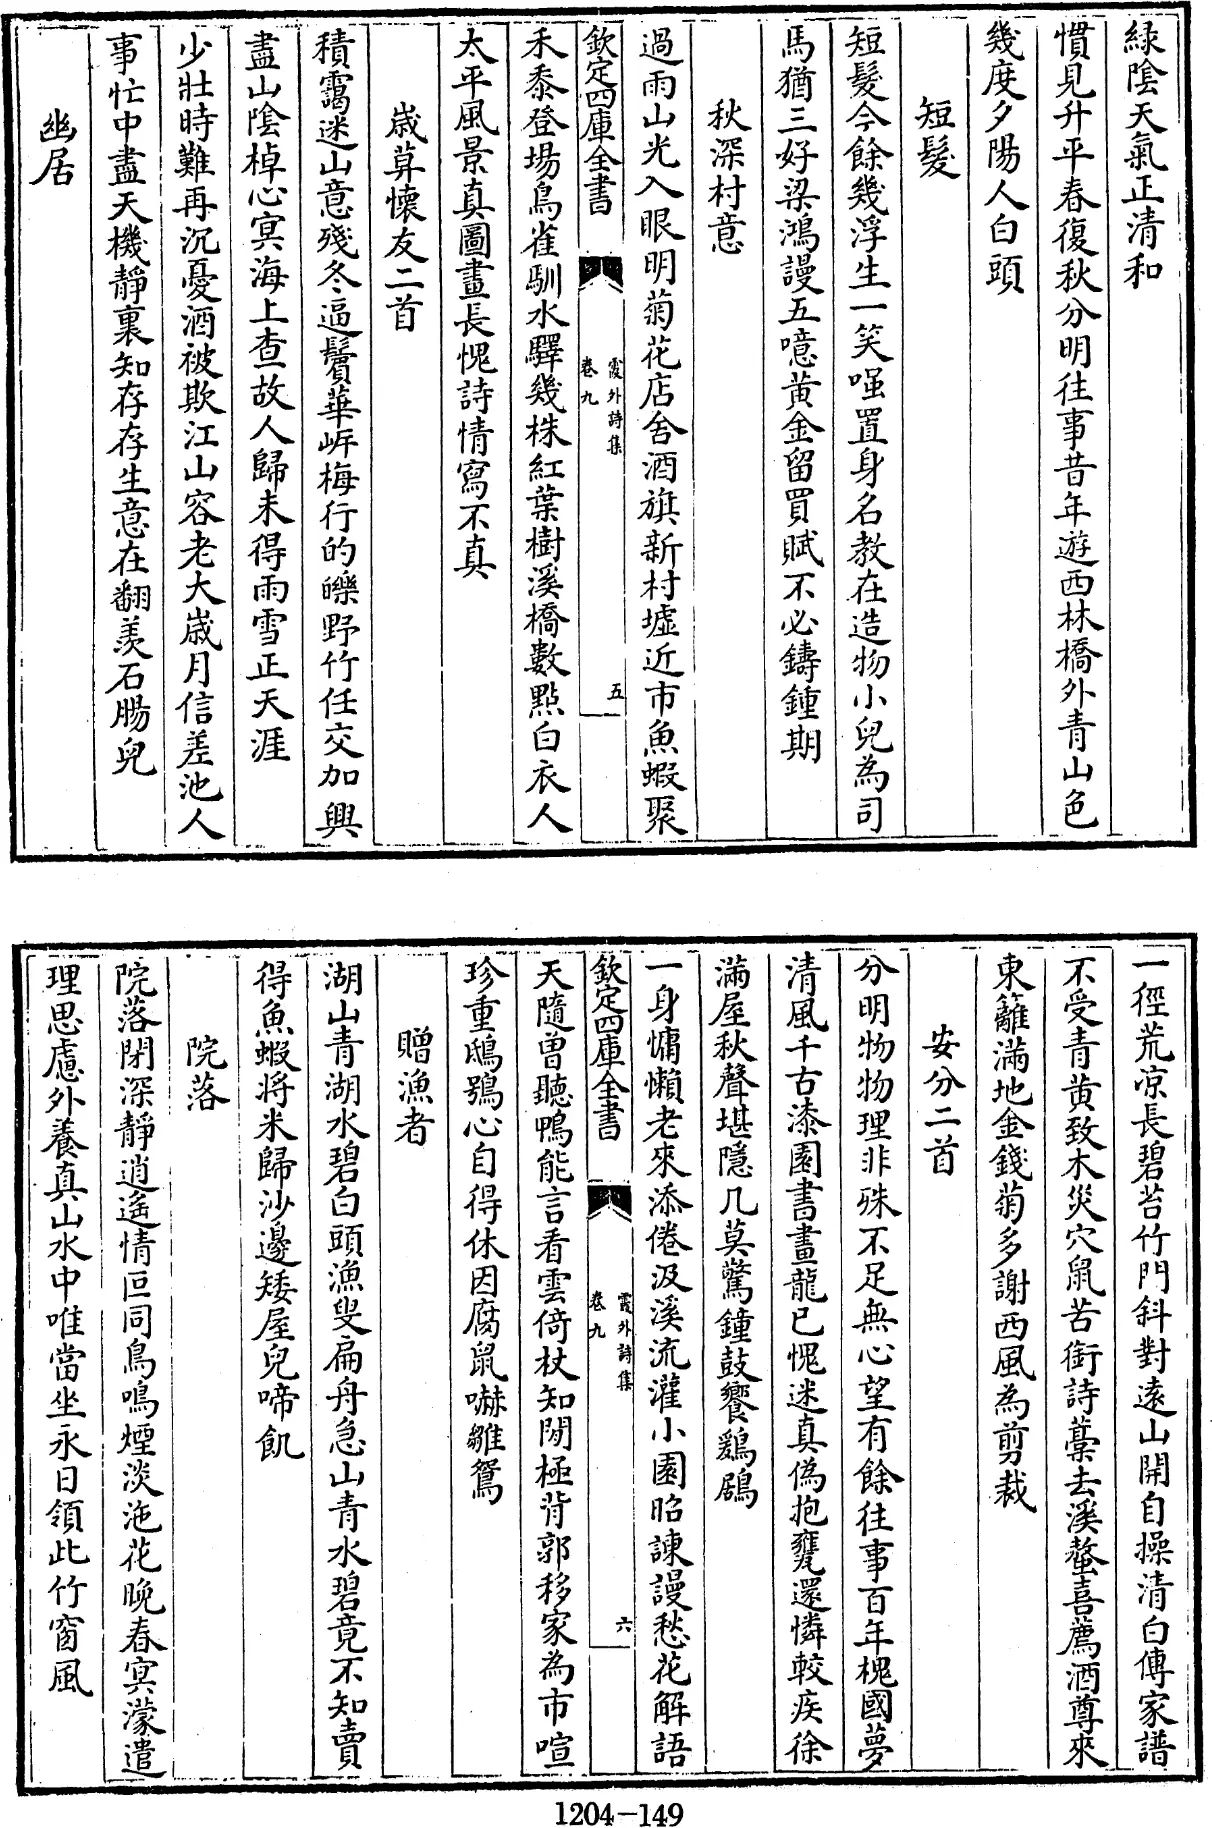 緑陰天氣正清和
慣見升平春復秋分明往事昔年遊西林橋外青山色
幾度夕陽人白頭
短髮
短髮今餘幾浮生一笑嗤置身名教在造物小兒為司
馬猶三好梁鴻謾五噫黄金留買賦不必鑄鍾期
秋深村意
過雨山光入眼明菊花店舍酒旗新村墟近市魚蝦聚
欽定四庫全書
霞外詩集
卷九
五
禾黍登場鳥雀馴水驛幾株紅葉樹溪橋數點白衣人
太平風景真圖畫長愧詩情寫不真
歲莫懷友二首
積靄迷山意殘冬逼鬢華岸梅行的皪野竹任交加興
盡山陰棹心冥海上查故人歸未得雨雪正天涯
少壯時難再沉憂酒被欺江山容老大歲月信差池人
事忙中盡天機靜裏知存存生意在翻羨石腸兒
幽居
一徑荒凉長碧苔竹門斜對遠山開自操清白傳家譜
不受青黄致木災穴鼠苦銜詩藁去溪螯喜薦酒尊來
東籬滿地金錢菊多謝西風為剪裁
安分二首
分明物物理非殊不足無心望有餘往事百年槐國夢
清風千古漆園書畫龍已愧迷真偽抱甕還憐較疾徐
滿屋秋聲堪隱几莫驚鐘鼓饗鶢鶋
一身慵懶老來添倦汲溪流灌小園昭諫謾愁花解語
欽定四庫全書
霞外詩集
卷九
六
天隨曾聽鴨能言看雲倚杖知閒極背郭移家為市喧
珍重鴟鴞心自得休因腐鼠嚇雛鴛
贈漁者
湖山青湖水碧白頭漁叟扁舟急山青水碧竟不知賣
得魚蝦將米歸沙邊矮屋兒啼飢
院落
院落閉深靜逍遙情叵同鳥鳴煙淡沲花晚春冥濛遣
理思慮外養真山水中唯當坐永日領此竹窗風
1204-149